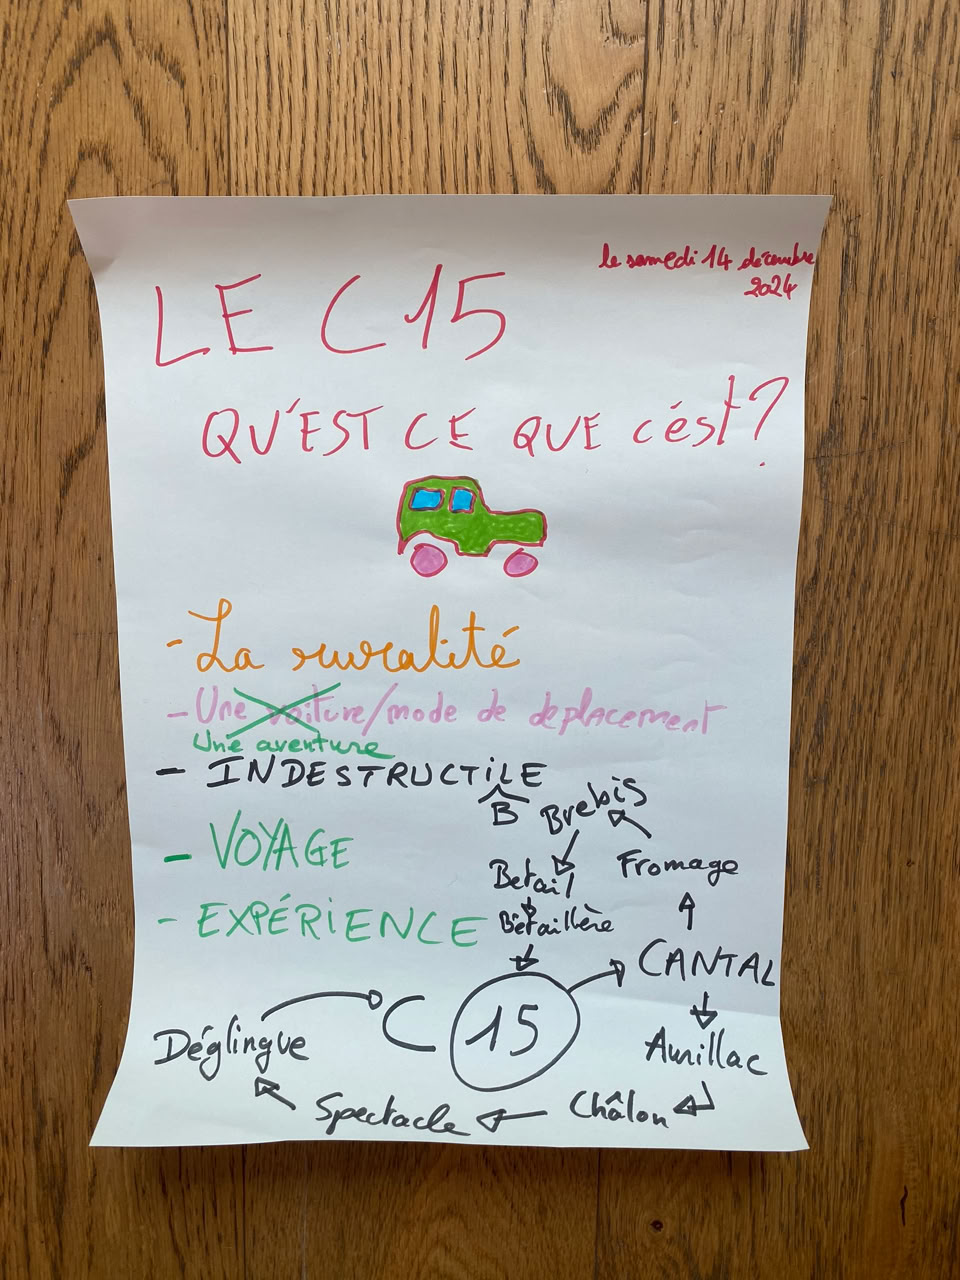 le samedi 14 décembre
2024
LE C15
QU'EST CE QUE c'ést?
- La ruralité
- Une voiture/mode de deplacement
Une aventure
- INDESTRUCTILE
B
- VOYAGE
- EXPÉRIENCE
Brebis
Fromage
Betail
Bétaillère
CANTAL
C 15
Aurillac
Châlon
Spectacle
Déglingue